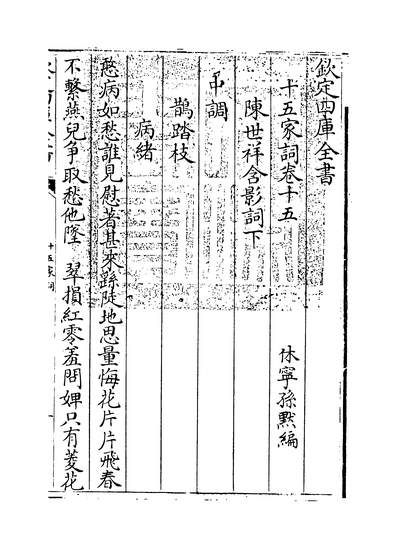 欽定四庫全書
十五家詞卷十五
休寧孫默編
陳世祥含影詞下
中調
鵲踏枝
病緒
愁病如愁誰見慰著甚來蹊陡地思量悔花片片飛春
不繫燕兒爭取愁他墜　翠損紅零羞問婢只有菱花
十五家詞